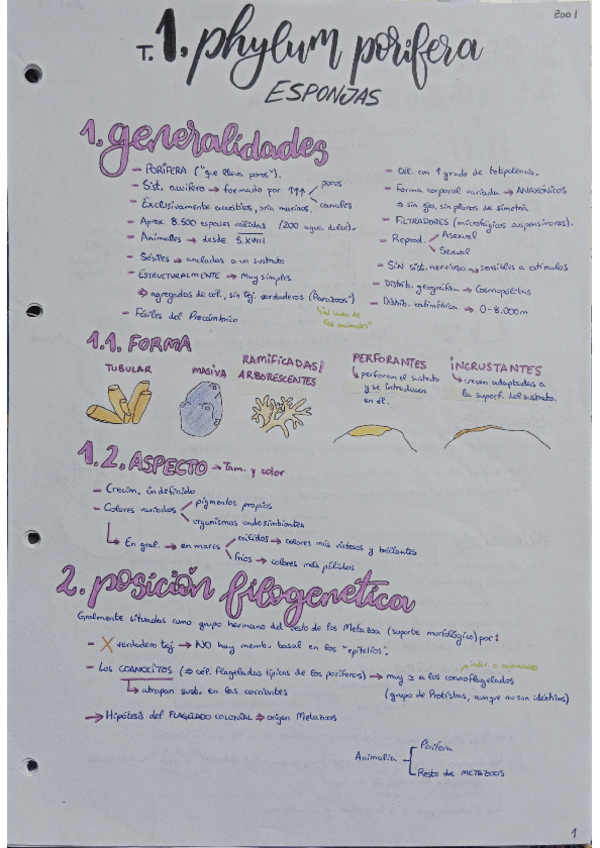 Zoo I
T. 1. phylum porifera
ESPONJAS
1. generalidades
- PORÍFERA ("que lleva poros").
- Sist. acuífero → formado por ↑↑↑ poros
canales
- Exclusivamente acuáticos, >ría marinos.
- Aprox. 8.500 especies válidas (200 agua dulce).
- Animales → desde S.XVIII
- Sésiles → ancladas a un sustrato
- ESTRUCTURALMENTE → Muy simples
⇒ agregados de cél, sin tej. verdaderos ("Parazoos")
"al lado de los animales"
- Fósiles del Precámbrico
- Cél. con ↑ grado de totipotencia.
- Forma corporal variada → ANAXÓNICOS
⇒ sin eje, sin planos de simetría
- FILTRADORES (micrófagos suspensívoros).
- Reprod. Asexual
Sexual
- SIN sist. nervioso → sensibles a estímulos
- Distrib. geográfica → Cosmopolitas
- Distrib. batimétrica → 0-8.000m
1.1. FORMA
TUBULAR
MASIVA
RAMIFICADAS/
ARBORESCENTES
PERFORANTES
↳ perforan el sustrato
y se introducen
en él.
INCRUSTANTES
↳ crecen adaptadas a
la superf. del sustrato.
1.2. ASPECTO → Tam. y color
- Crecim. indefinido
- Colores variados pigmentos propios
organismos endosimbiontes
↳ En gral. → en mares cálidos → colores más vistosos y brillantes
fríos → colores más pálidos
2. posición filogenética
Gralmente situadas como grupo hermano del resto de los Metazoa (soporte morfológico) por:
- X verdadero tej → NO hay memb. basal en los "epitelios".
- Los COANOCITOS (⇒ cél. flageladas típicas de los poríferos) → muy ≃ a los coanoflagelados
indiv. o coloniales
↳ atrapan sust. en las corrientes
(grupo de Protistas, aunque no son idénticos)
→ Hipótesis del FLAGELADO COLONIAL ⇒ origen Metazoos
Animalia Porifera
Resto de METAZOOS
1